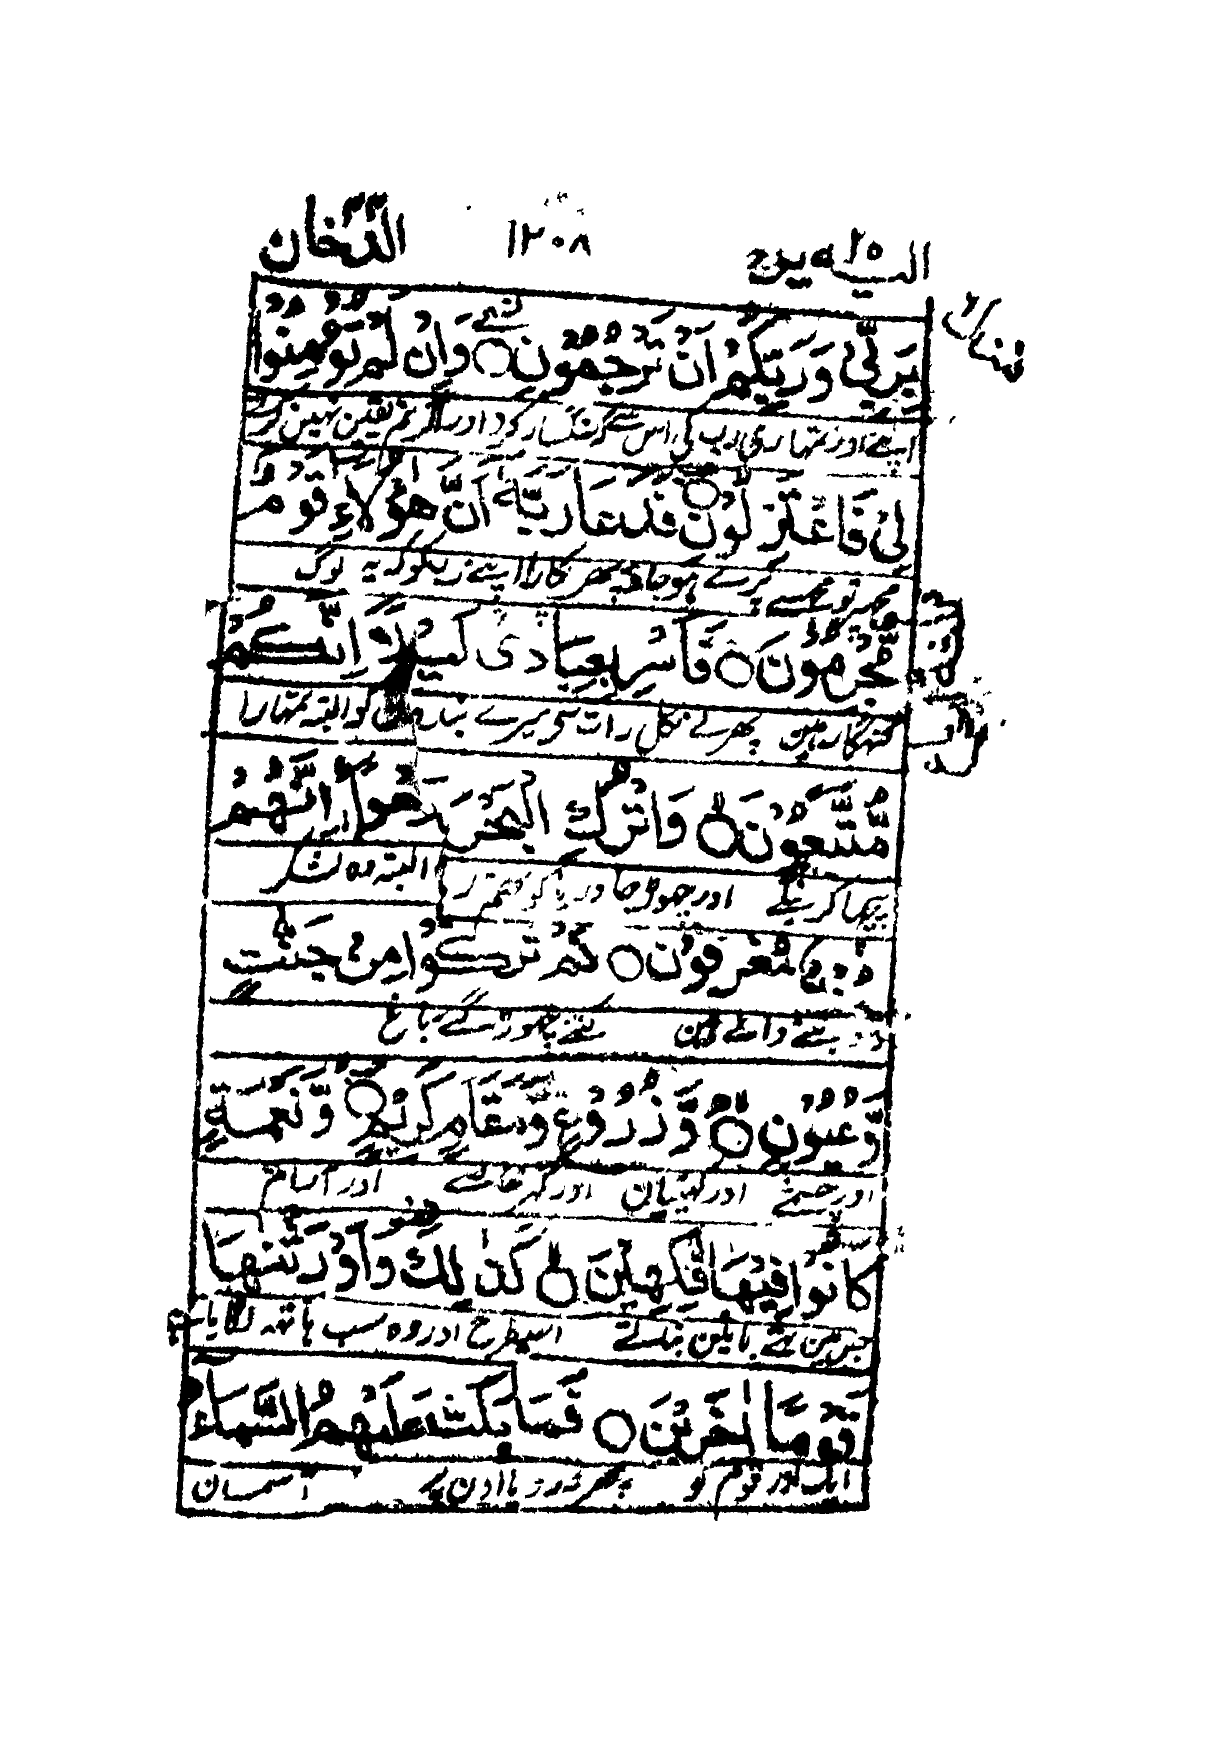 الیه یرد ۲۵ ۱۲۰۸ الدّخان
بِرَبِّيْ وَرَبِّكُمْ اَنْ تَرْجُمُوْنِ ○ وَاِنْ لَّمْ تُؤْمِنُوْا
اپنے اور تمہاری رب کی اس سے کہ سنگسار کرو اور اگر تم یقین نہین کرتے
لِيْ فَاعْتَزِلُوْنِ ○ فَدَعَا رَبَّهٗۤ اَنَّ هٰۤؤُلَآءِ قَوْمٌ
تو مجھسے پرے ہو جاؤ پھر پکارا اپنے رب کو کہ یہ لوگ
مُّجْرِمُوْنَ ○ فَاَسْرِ بِعِبَادِيْ لَيْلًا اِنَّكُمْ
گنہگار ہین پھر لے نکل رات سی میرے بندون کو البتہ تمہارا
مُّتَّبَعُوْنَ ○ وَاتْرُكِ الْبَحْرَ رَهْوًا اِنَّهُمْ
پیچھا کرینگے اور چھوڑ جا دریا کو البتہ وہ لشکر
جُنْدٌ مُّغْرَقُوْنَ ○ كَمْ تَرَكُوْا مِنْ جَنّٰتٍ
ڈوبنے والے ہین کتنے چھوڑ گے باغ
وَّعُيُوْنٍ ○ وَّزُرُوْعٍ وَّمَقَامٍ كَرِيْمٍ ○ وَّنَعْمَةٍ
اور چشمے اور کھیتیان اور گھر خاصے اور آرام
كَانُوْا فِيْهَا فٰكِهِيْنَ ○ كَذٰلِكَ وَاَوْرَثْنٰهَا
جس مین تھے باتین بناتے اسیطرح اور وہ سب ہاتھ لگایا
قَوْمًا اٰخَرِيْنَ ○ فَمَا بَكَتْ عَلَيْهِمُ السَّمَآءُ
ایک اور قوم کو پھر نہ رویا اون پر آسمان